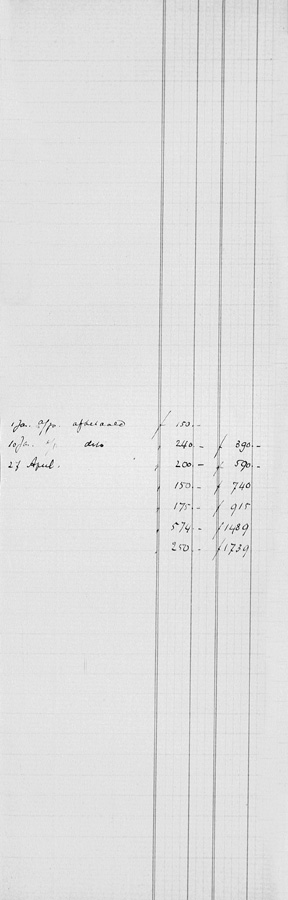 1 Jan. a/po. afbetaald f 150.-
10 Jan. a/p. dito " 240.- f 390.-
27 April. " 200.- f 590.-
" 150.- f 740
" 175.- f 915
" 574.- f 1489
" 250.- f 1739